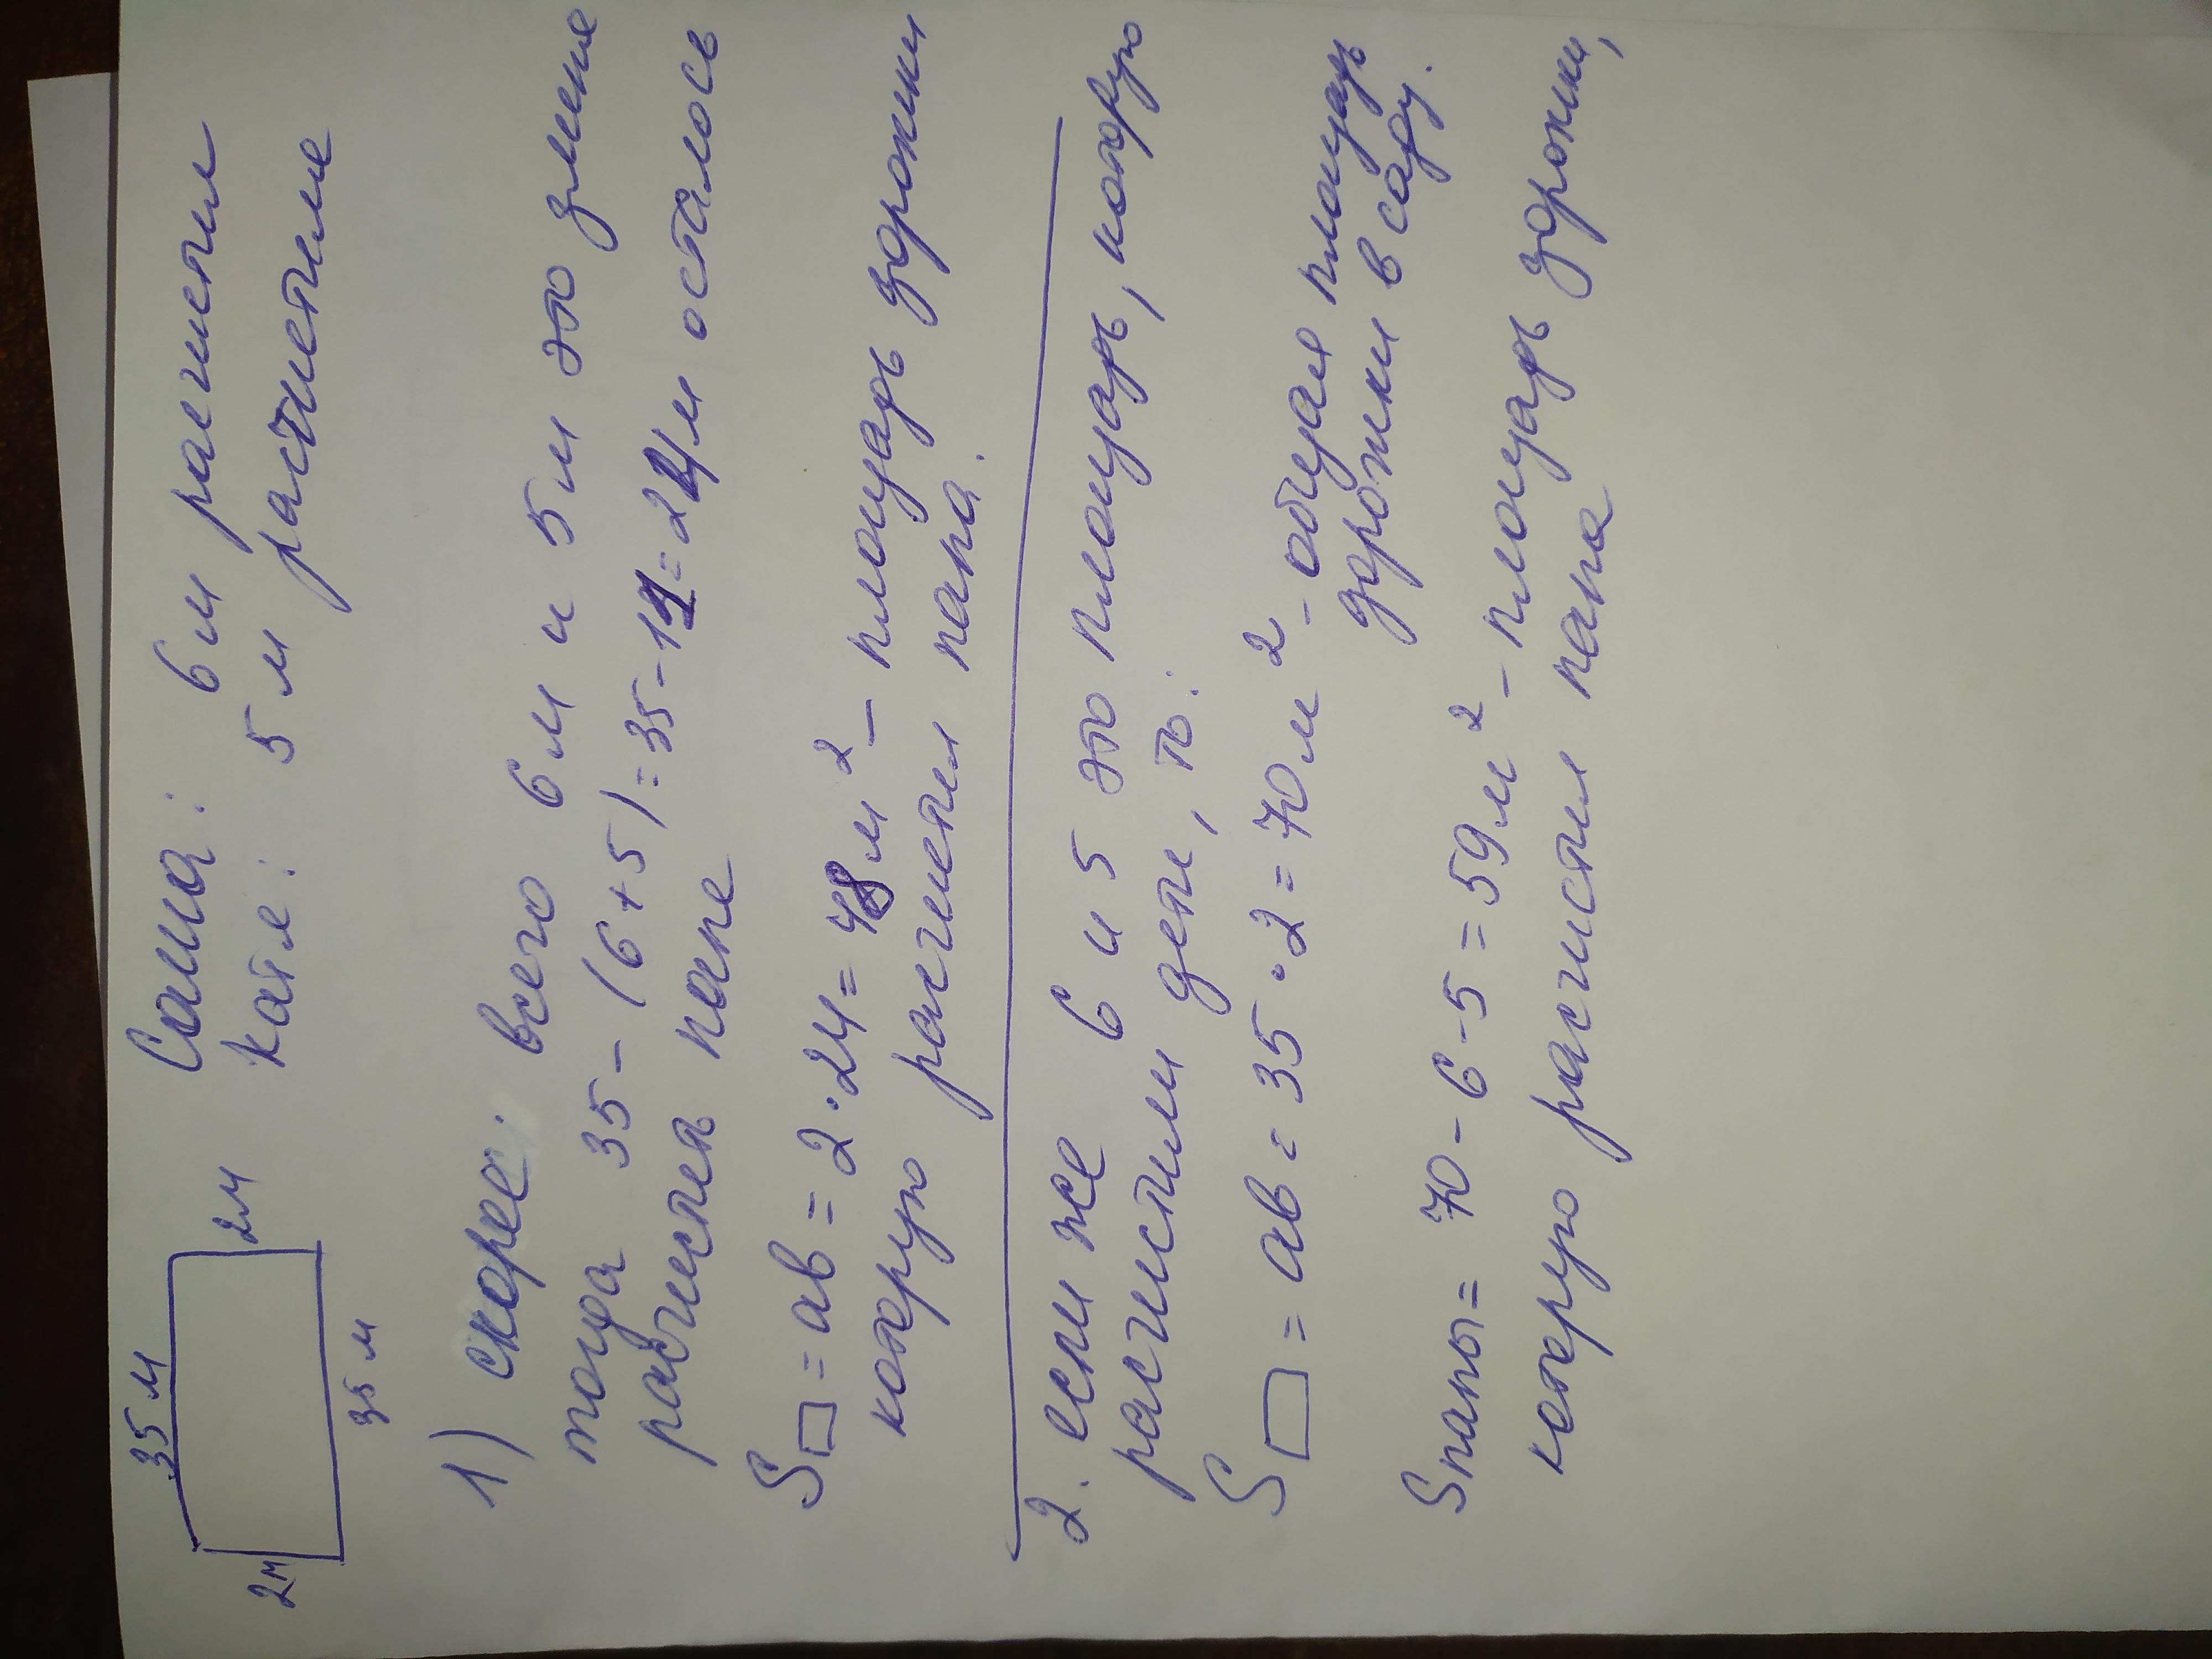 35 м
2м
2м
35 м
Саша: 6 м расчистил
Катя: 5 м расчистила
1) скорее всего 6 м и 5 м это длина
тогда 35 - (6+5) = 35-11 = 24 м осталось
расчистить папе
S▭ = ав = 2·24 = 48 м² - площадь дорожки
которую расчистил папа.
2. если же 6 и 5 это площадь, которую
расчистили дети, то:
S▭ = ав = 35·2 = 70 м² - общая площадь
дорожки в саду.
Sпапы = 70-6-5 = 59 м² - площадь дорожки,
которую расчистил папа